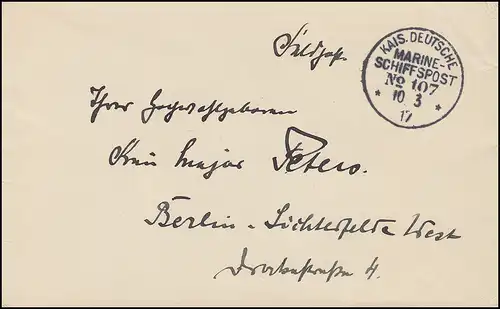 Feldpost.
KAIS. DEUTSCHE
MARINE-
SCHIFFSPOST
No 107
* 10 3 *
17
Ihrer Hochwohlgeboren
Frau Major Peters.
Berlin-Lichterfelde West
4.